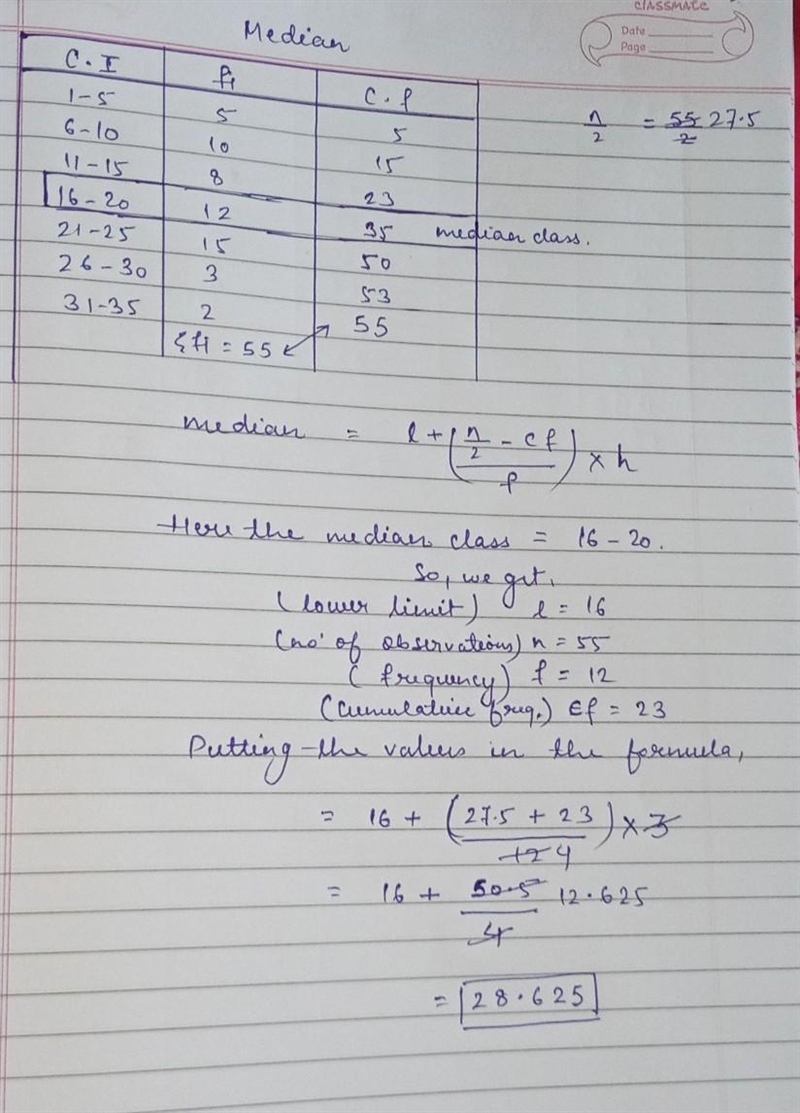 CLASSMATE
Date
Page
Median
C.I f₁ C.f
1-5 5 5
6-10 10 15
11-15 8 23
16-20 12 35 median class.
21-25 15 50
26-30 3 53
31-35 2 55
Σf1 = 55
n/2 = 55/2 27.5
median = l + (n/2 - cf / f) × h
Here the median class = 16-20.
So, we get,
(lower limit) l = 16
(no' of observations) n = 55
(frequency) f = 12
(Cumulative freq.) Cf = 23
Putting the values in the formula,
= 16 + (27.5 + 23 / 12 4) × 3
= 16 + 50.5 / 4 12.625
= 28.625